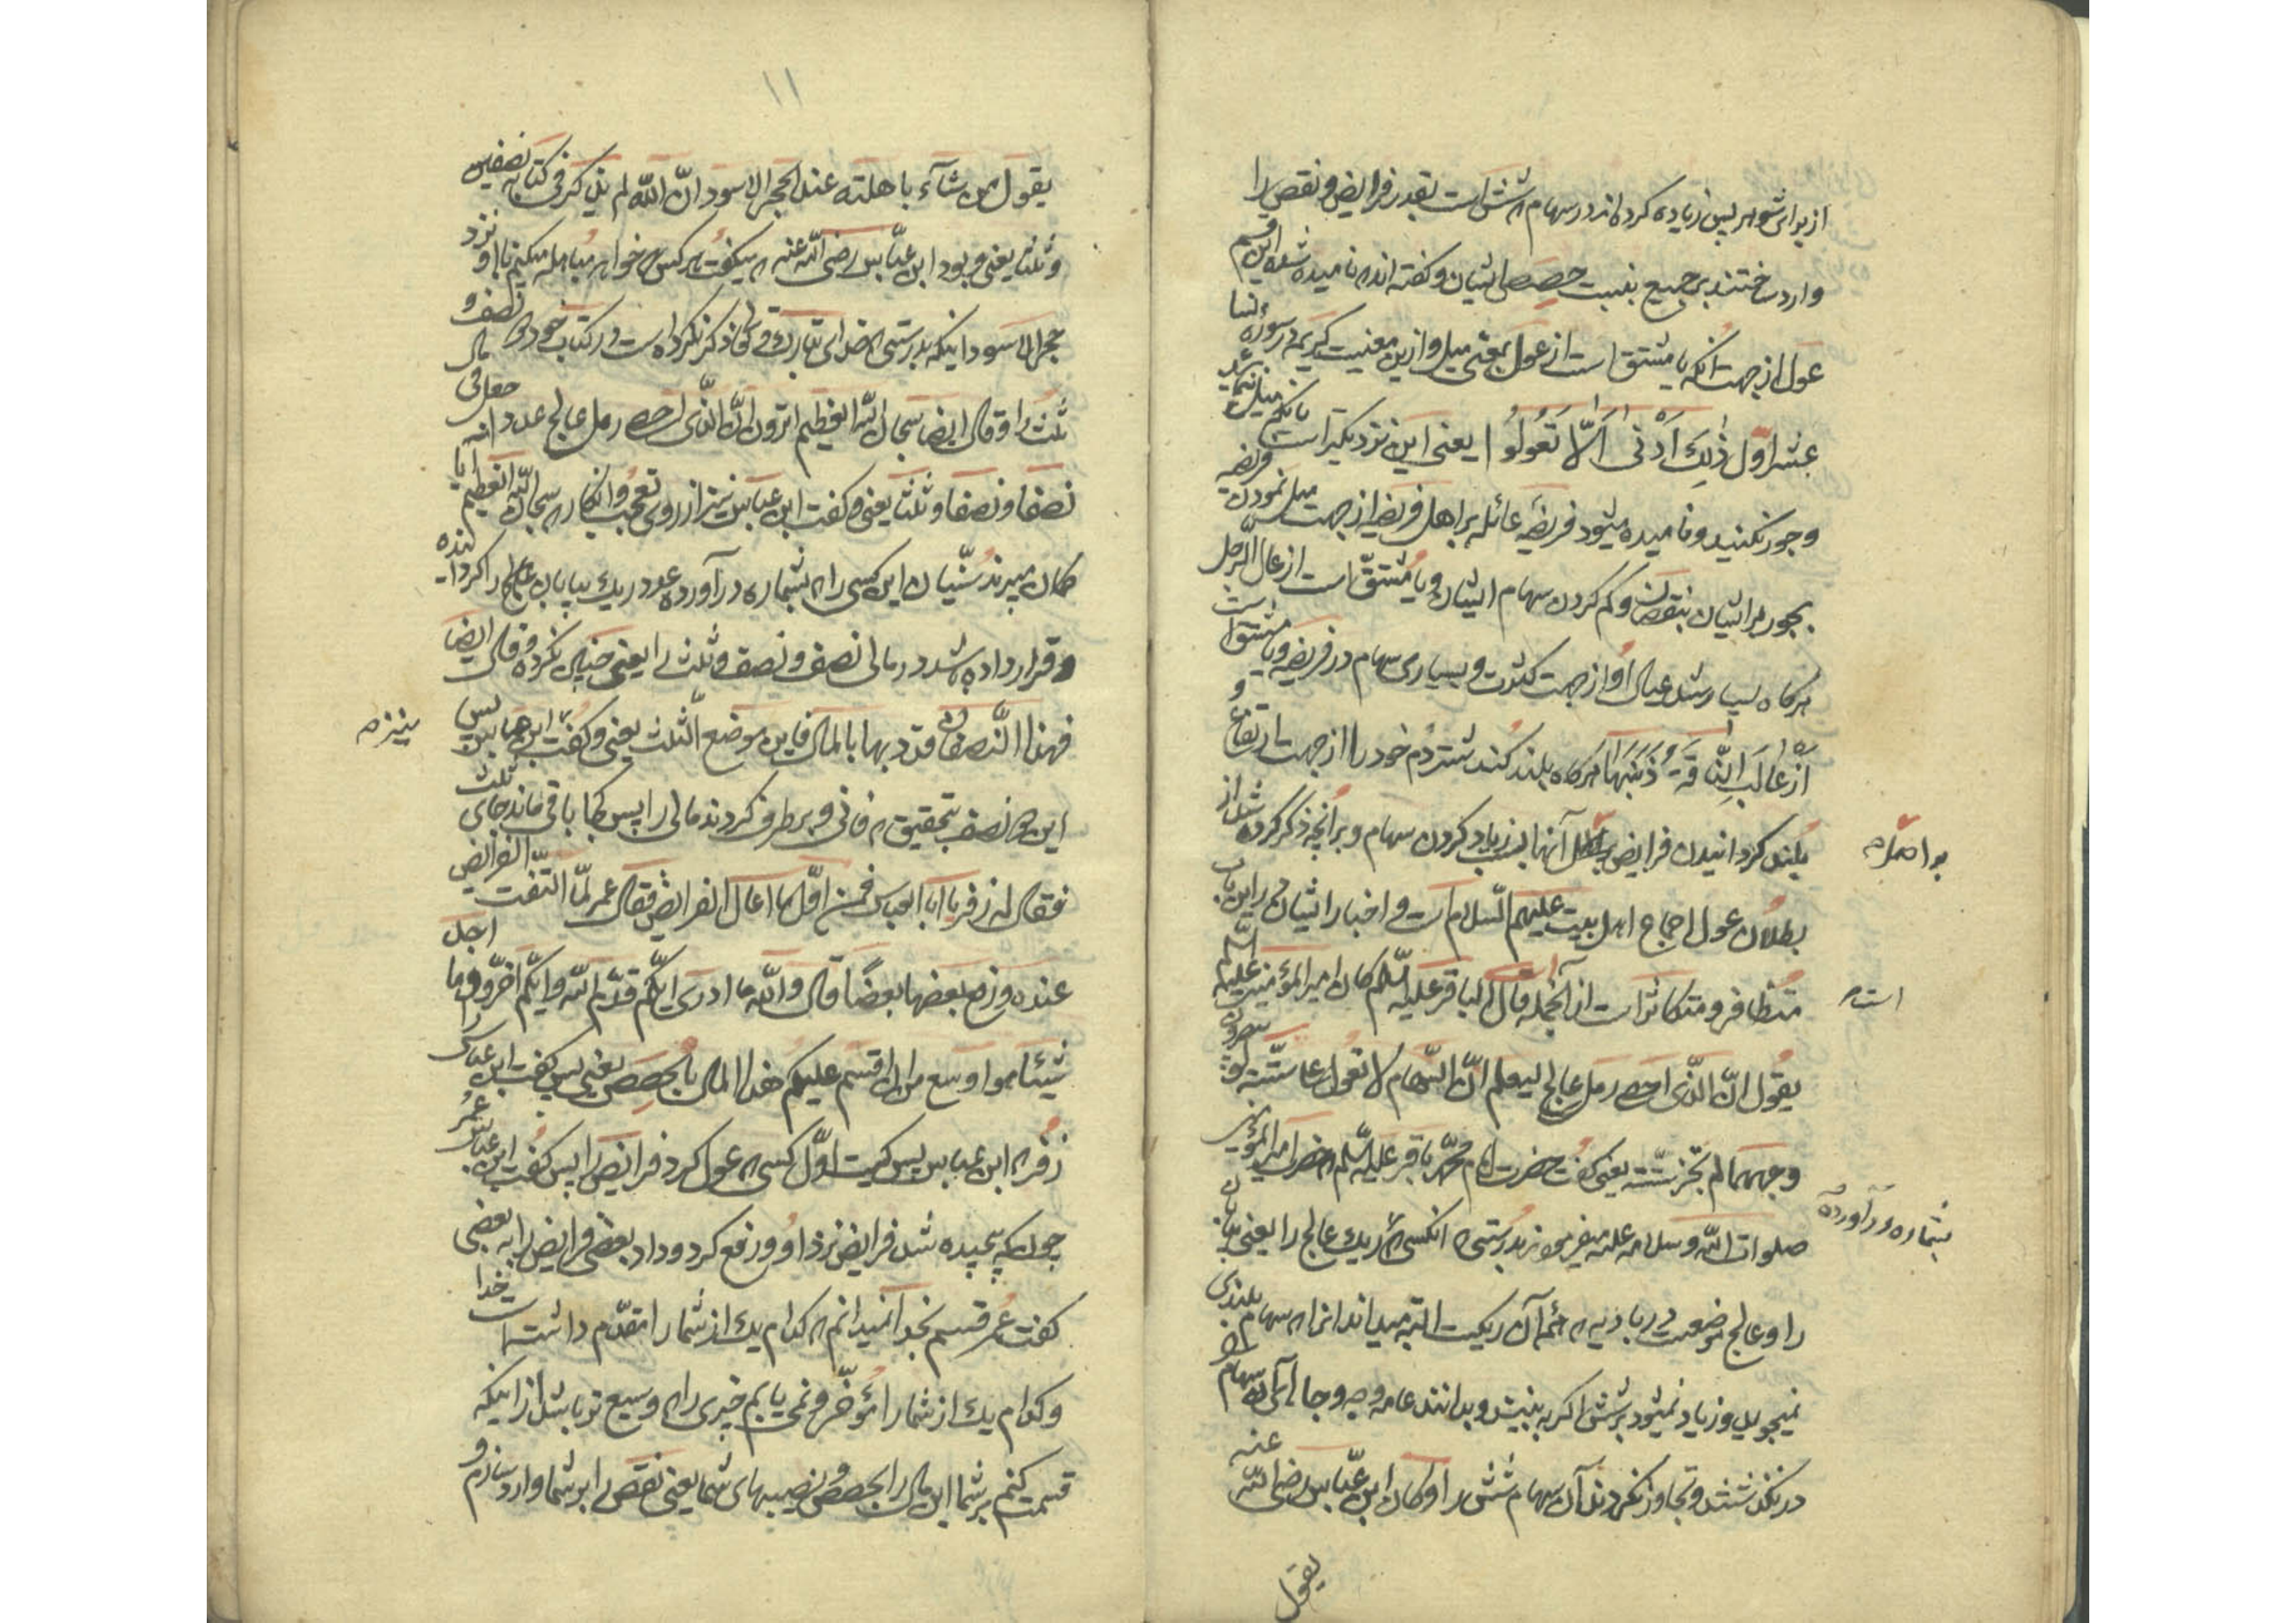 از برای شوهر پس زیاده کرده‌اند در سهام که شش است بقدر فرایض و نقص را
وارد ساختند بر جمیع بنسبت حصص ایشان و گفته‌اند که نامیده شده این قسم
عول از جهت آنکه یا مشتق است از عول بمعنی میل و ازین معنیست کریمه در سوره نسا
عشر اول ذٰلِكَ اَدْنٰى اَلّا تَعُولُوا یعنی این نزدیکتر است بانکه میل نکنید
و جور نکنید و نامیده میشود فریضه عائله بر اهل فریضه از جهت میل نمودن فریضه
بجور بر ایشان بنقصان و کم کردن سهام ایشان و یا مشتق است از عال الرجل
هرگاه بسیار شد عیال او از جهت کثرت و بسیاری سهام در فریضه و یا مشتق است
از عالَت النّاقَةُ ذَنَبَهَا هرگاه بلند کند شتر دم خود را از جهت ارتفاع و
بلند گردانیدن فرایض اصل آنها بسبب زیاد کردن سهام و بر آنچه ذکر کرده شد از
بطلان عول اجماع اهل بیت علیهم السلام است و اخبار ایشان در این باب
متظافر و متکاثر است از آنجمله قال الباقر علیه السّلم کان امیر المؤمنین علیه السّلم
یقول انّ الّذی احصی رمل عالج لیعلم انّ السّهام لا تعول علی ستّة لو یبصرون
وجهها لم تجز ستّة یعنی گفت حضرت امام محمّد باقر علیه السّلم که حضرت امیر المؤمنین
صلوات اللّه و سلامه علیه میفرمودند بدرستی که آنکسی که ریک عالج را یعنی بیابان
را و عالج موضعیست در بادیه که در آن ریکیست البته میداند انرا که سهام بلندی
نمیجوید و زیاد نمیشود بر شش اگر به بینند و بدانند عامه وجه و جای آن سهام
در نگذشتند و تجاوز نکردند آن سهام شش را و کان ابن عبّاس رضی اللّه عنه
بشماره در آورده
است
یقول
۱۱
یقول من شآء باهلته عند الحجر الاسود انّ اللّه لم یذکر فی کتابه نصفین
و ثلثا یعنی و بود ابن عبّاس رضی اللّه عنه که میگفت هر کس که خواهد مباهله میکنم با او نزد
حجر الاسود اینکه بدرستی که خدای تبارک و تعالی ذکر نکرده است در کتاب خود دو نصف و
ثلث را و قال ایضا سبحان اللّه العظیم اترون انّ الّذی احصی رمل عالج عددا جعل فی مال
نصفا و نصفا و ثلثا یعنی و گفت ابن عباس نیز از روی تعجب و انکار که سبحان اللّه العظیم ایا
گمان میبرند سنّیان این کسی را که بشماره در آورده عدد ریك بیابان عالج را
و قرار داده باشد در مالی نصف و نصف و ثلث را یعنی چنین نکرده و قال ایضا
فهذا النّصفان قد ذهبا بالمال فاین موضع الثّلث یعنی و گفت ابن عباس پس
این دو نصف بتحقیق که فانی و برطرف کردند مالی را پس کجا باقی ماند جای ثلث
فقال له زفر یا ابا العباس فمن اوّل من اعال الفرایض فقال عمر لمّا التفّت الفرائض
عنده و دفع بعضها بعضًا قال و اللّه ما ادری ایّکم قدّم اللّه و ایّکم اخّر و ما اجد
شیئا هو اوسع من ان اقسم علیکم هذا المال بالحصص یعنی پس گفت ابن عباس را
زفر که ابن عباس پس کیست اوّل کسی که عول کرد فرائض را پس گفت ابن عباس عُمر
چون که پیچیده شد فرایض نزد او و دفع کرد و داد بعضی فرایض را به بعضی
گفت عمر قسم بخدا نمیدانم که کدام یك از شما را مقدّم داشته است خدا
و کدام یك از شما را مؤخّر و نمی یابم چیزی را که وسیع تر باشد از اینکه
قسمت کنم بر شما این مال را بحصص و نصیبهای شما یعنی نقص را بر شما وارد سازم و